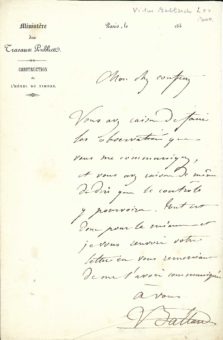 Ministère
des
Travaux Publics
CONSTRUCTION
de
L'HÔTEL DU TIMBRE.
Paris, le 184
Mon cher confrère
Vous avez raison de faire
les observations que
vous me communiquez,
et vous avez raison de même
de dire que le contrôle
y pourvoira. Tout est
donc pour le mieux et
je vous renvoie votre
lettre en vous remerciant
de me l'avoir communiquée
à vous
V Baltard